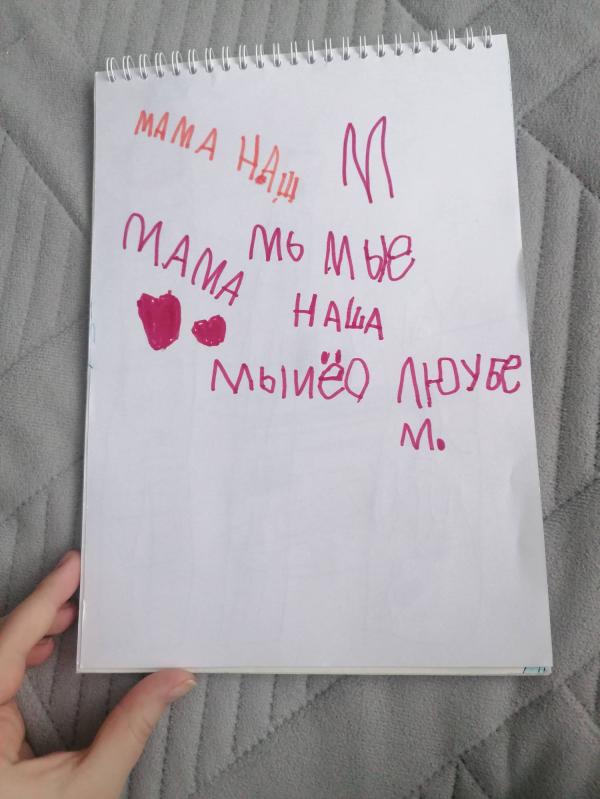 МАМА НАЩ
М
МАМА МЬ МЫЕ
НАША
МЫИЁО ЛЮУБЕ
М.